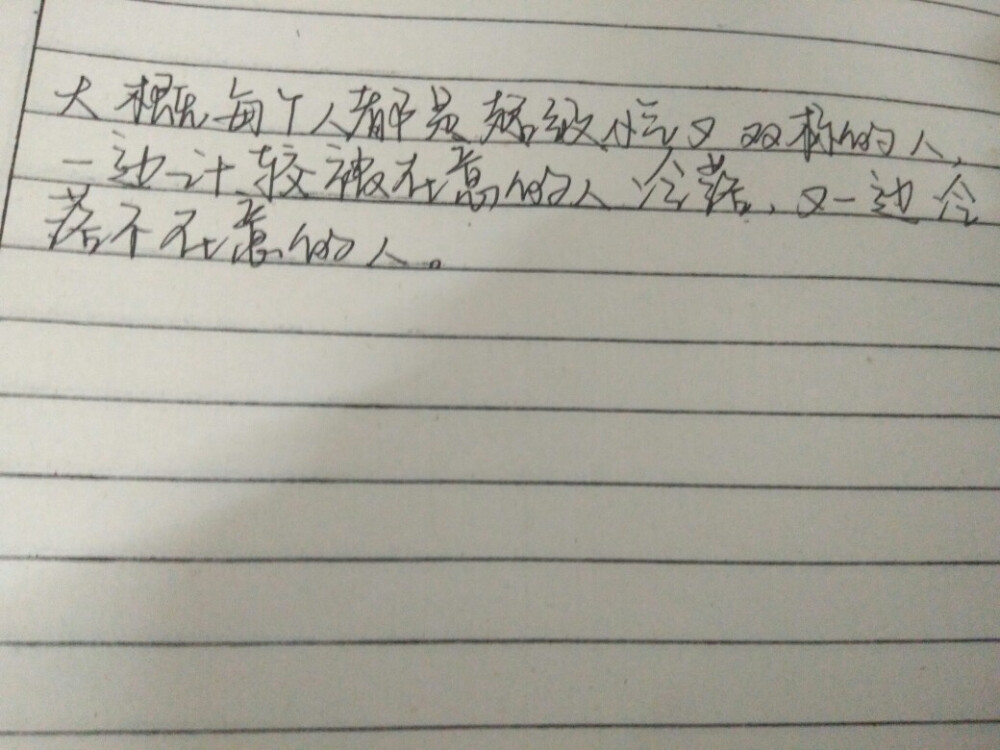 大概每个人都是矫敏感又双标的人,
一边计较被在意的人冷落,又一边冷
落不在意的人。